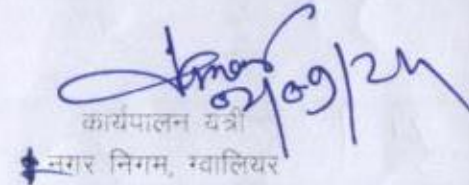 02/09/24
कार्यपालन यंत्री
नगर निगम, ग्वालियर